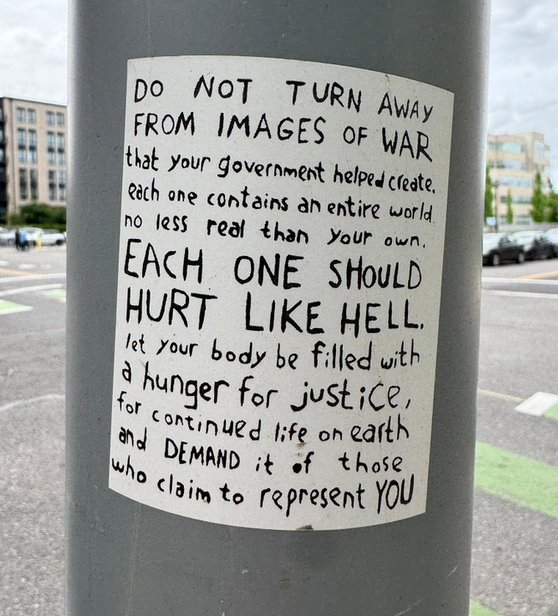 DO NOT TURN AWAY
FROM IMAGES OF WAR
that your government helped create.
each one contains an entire world
no less real than your own.
EACH ONE SHOULD
HURT LIKE HELL.
let your body be filled with
a hunger for justice,
for continued life on earth
and DEMAND it of those
who claim to represent YOU